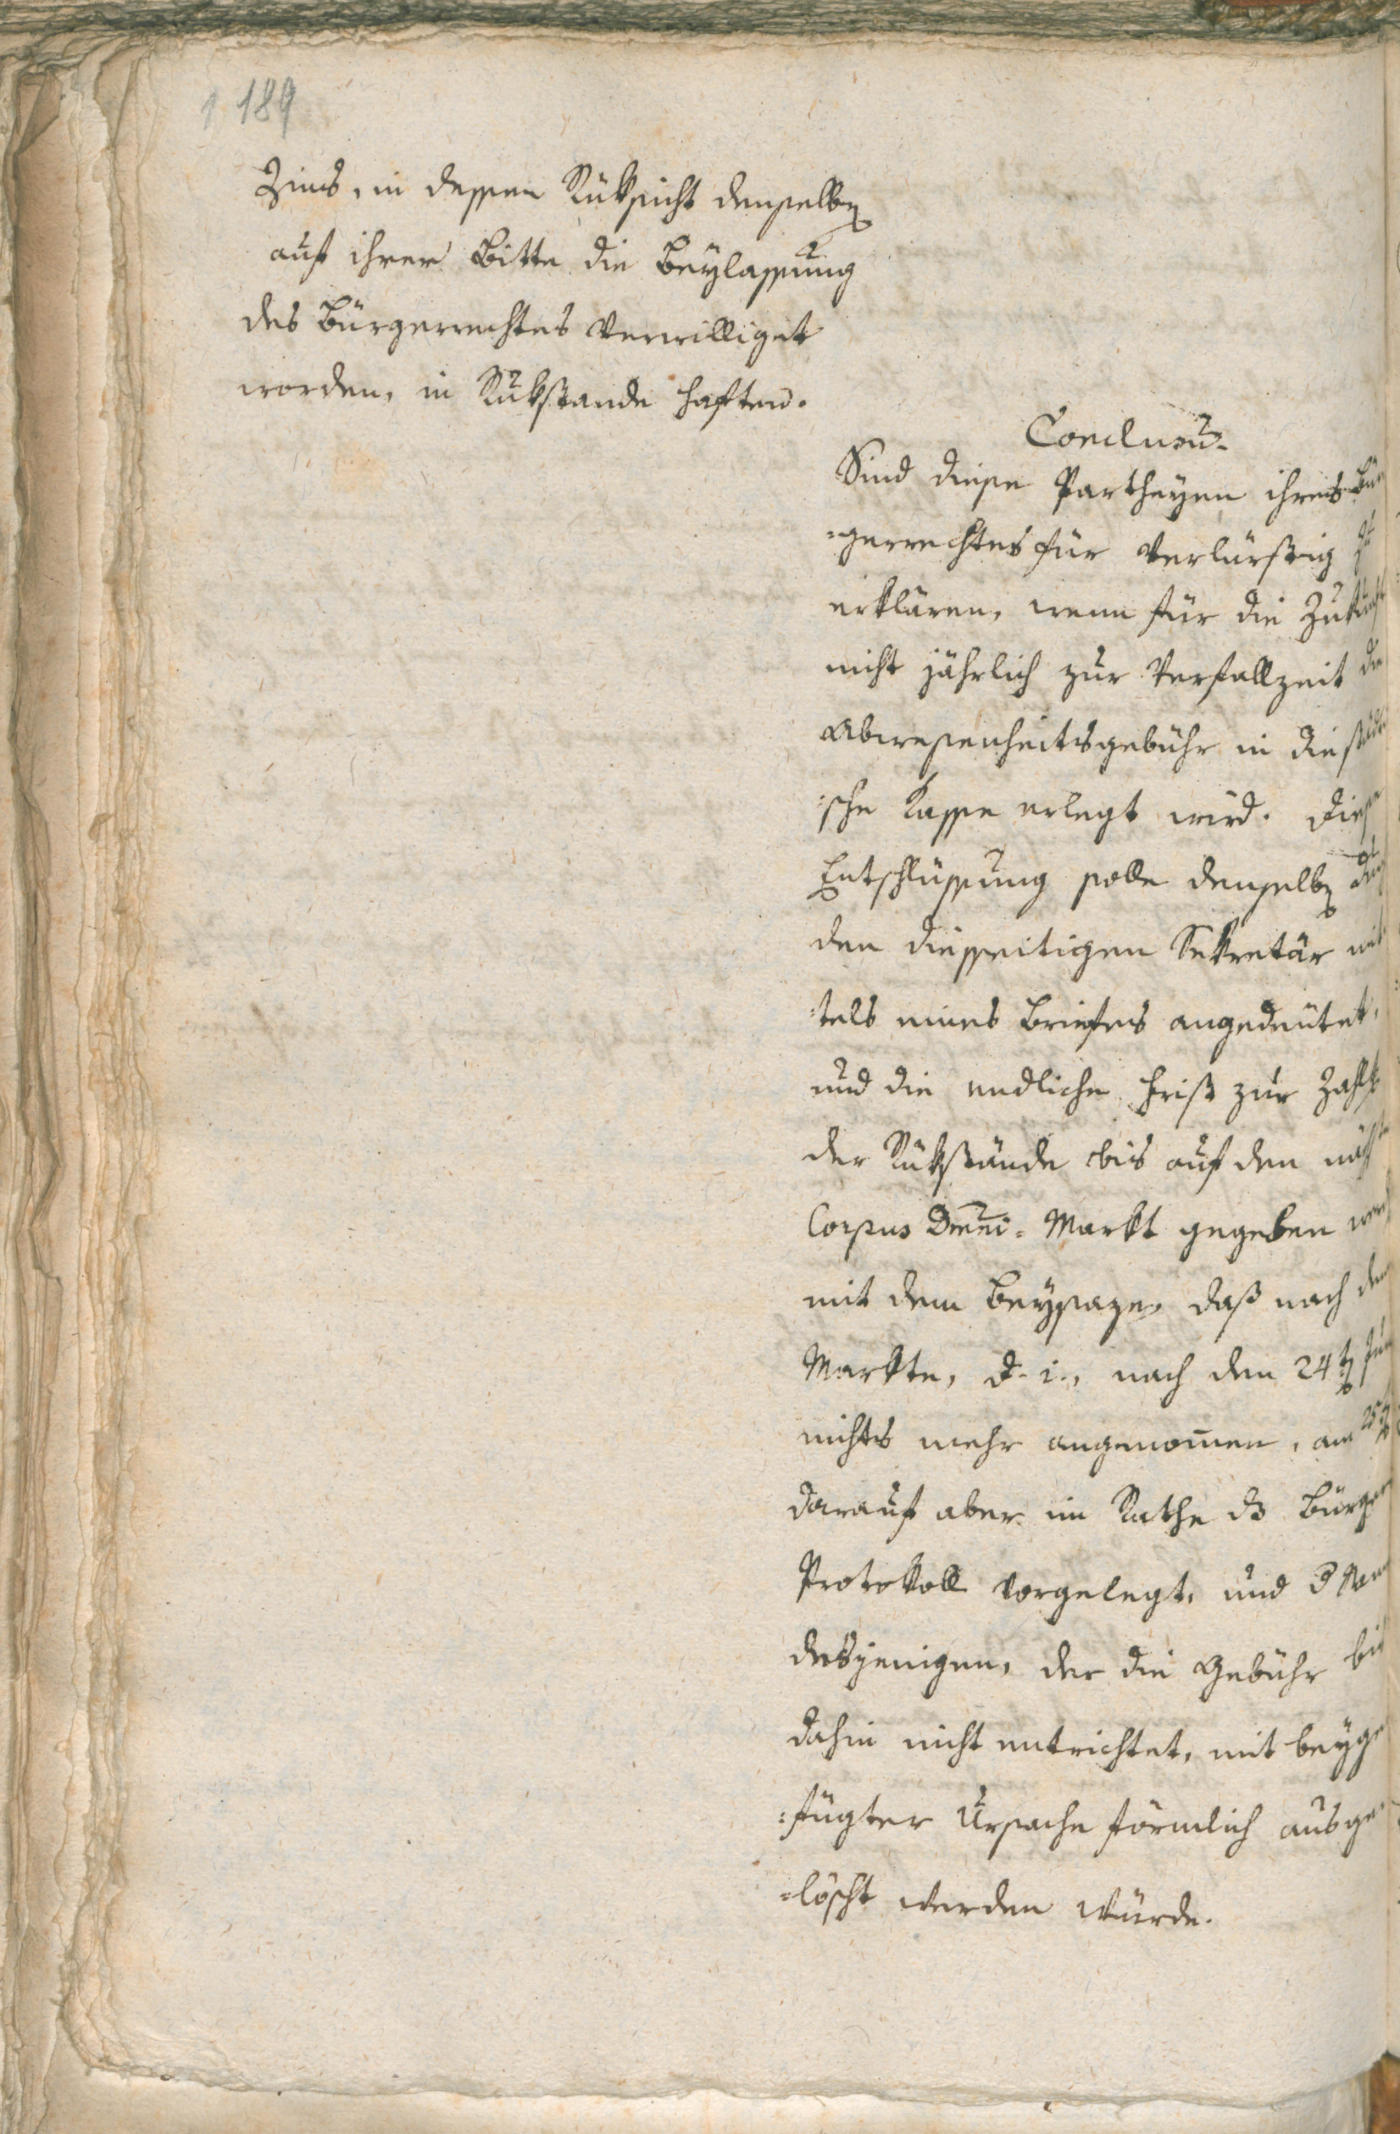 1 189
Zins, in dessen Rüksicht denselben
auf ihrer Bitte die Beylassung
des Bürgerrechtes verwilliget
worden, in Rükstande haften.
Conclusū.
Sind diese Partheyen ihres Bür
=gerrechtes für verlürstig zu
erklären, wenn für die Zukunft
nicht jährlich zur Verfallzeit die
Abwesenheitsgebühr in die städti
=sche Kasse erlegt wird. Diese
Entschlüssung solle denselben durch
den diesseitigen Sekretär mit
=tels eines Briefes angedeutet,
und die endliche Frist zur Zahlg
der Rükstände bis auf den näch
Corpus Dm̄ni= Markt gegeben werd
mit dem Beysaze, daß nach dem
Markte, d. i., nach dem 24ten Jun
nichts mehr angenom̄en, am 25ten
darauf aber im Rathe ds Bürger
Protokoll vorgelegt, und d Nam
desjenigen, der die Gebühr bis
dahin nicht entrichtet, mit beyge
=fügter Ursache förmlich ausge
=löscht werden würde.